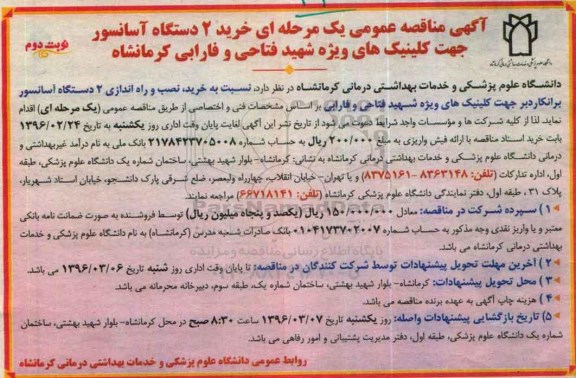 آگهی مناقصه عمومی یک مرحله ای خرید ۲ دستگاه آسانسور
جهت کلینیک های ویژه شهید فتاحی و فارابی کرمانشاه
نوبت دوم
دانشگاه علوم پزشکی و خدمات بهداشتی درمانی کرمانشاه در نظر دارد، نسبت به خرید، نصب و راه اندازی ۲ دستگاه آسانسور
برانکاردبر جهت کلینیک های ویژه شهید فتاحی و فارابی بر اساس مشخصات فنی و اختصاصی از طریق مناقصه عمومی (یک مرحله ای) اقدام
نماید. لذا از کلیه شرکت ها و مؤسسات واجد شرایط دعوت می شود از تاریخ نشر این آگهی لغایت پایان وقت اداری روز یکشنبه به تاریخ ۱۳۹۶/۰۲/۲۴
بابت خرید اسناد مناقصه با ارائه فیش واریزی به مبلغ ۲۰۰/۰۰۰ ریال به حساب شماره ۲۱۷۸۴۲۳۷۰۵۰۰۸ بانک ملی به نام درآمد غیربهداشتی و
درمانی دانشگاه علوم پزشکی و خدمات بهداشتی درمانی کرمانشاه به نشانی: کرمانشاه- بلوار شهید بهشتی، ساختمان شماره یک دانشگاه علوم پزشکی، طبقه
اول، اداره تدارکات (تلفن: ۸۳۶۳۱۴۸ -۸۳۷۵۱۶۱) و یا تهران- خیابان انقلاب، چهارراه ولیعصر، ضلع شرقی پارک دانشجو، خیابان استاد شهریار،
پلاک ۳۱ ، طبقه اول، دفتر نمایندگی دانشگاه علوم پزشکی کرمانشاه (تلفن: ۶۶۷۱۸۱۴۱) مراجعه نمایند.
۱) سپرده شرکت در مناقصه: معادل ۱۵۰/۰۰۰/۰۰۰ ریال (یکصد و پنجاه میلیون ریال) توسط فروشنده به صورت ضمانت نامه بانکی
معتبر و یا واریز نقدی وجه مذکور به حساب شماره ۰۱۰۴۱۷۳۷۰۲۰۰۷ بانک صادرات شعبه مدرس (کرمانشاه) به نام دانشگاه علوم پزشکی و خدمات
بهداشتی درمانی کرمانشاه می باشد.
۲) آخرین مهلت تحویل پیشنهادات توسط شرکت کنندگان در مناقصه: تا پایان وقت اداری روز شنبه تاریخ ۱۳۹۶/۰۳/۰۶ می باشد.
۳) محل تحویل پیشنهادات: کرمانشاه- بلوار شهید بهشتی، ساختمان شماره یک، طبقه سوم، دبیرخانه محرمانه می باشد.
۴) هزینه چاپ آگهی به عهده برنده مناقصه می باشد.
۵) تاریخ بازگشایی پیشنهادات واصله: روز یکشنبه تاریخ ۱۳۹۶/۰۳/۰۷ ساعت ۸:۳۰ صبح در محل کرمانشاه- بلوار شهید بهشتی، ساختمان
شماره یک دانشگاه علوم پزشکی، طبقه اول، دفتر مدیریت پشتیبانی و امور رفاهی می باشد.
روابط عمومی دانشگاه علوم پزشکی و خدمات بهداشتی درمانی کرمانشاه